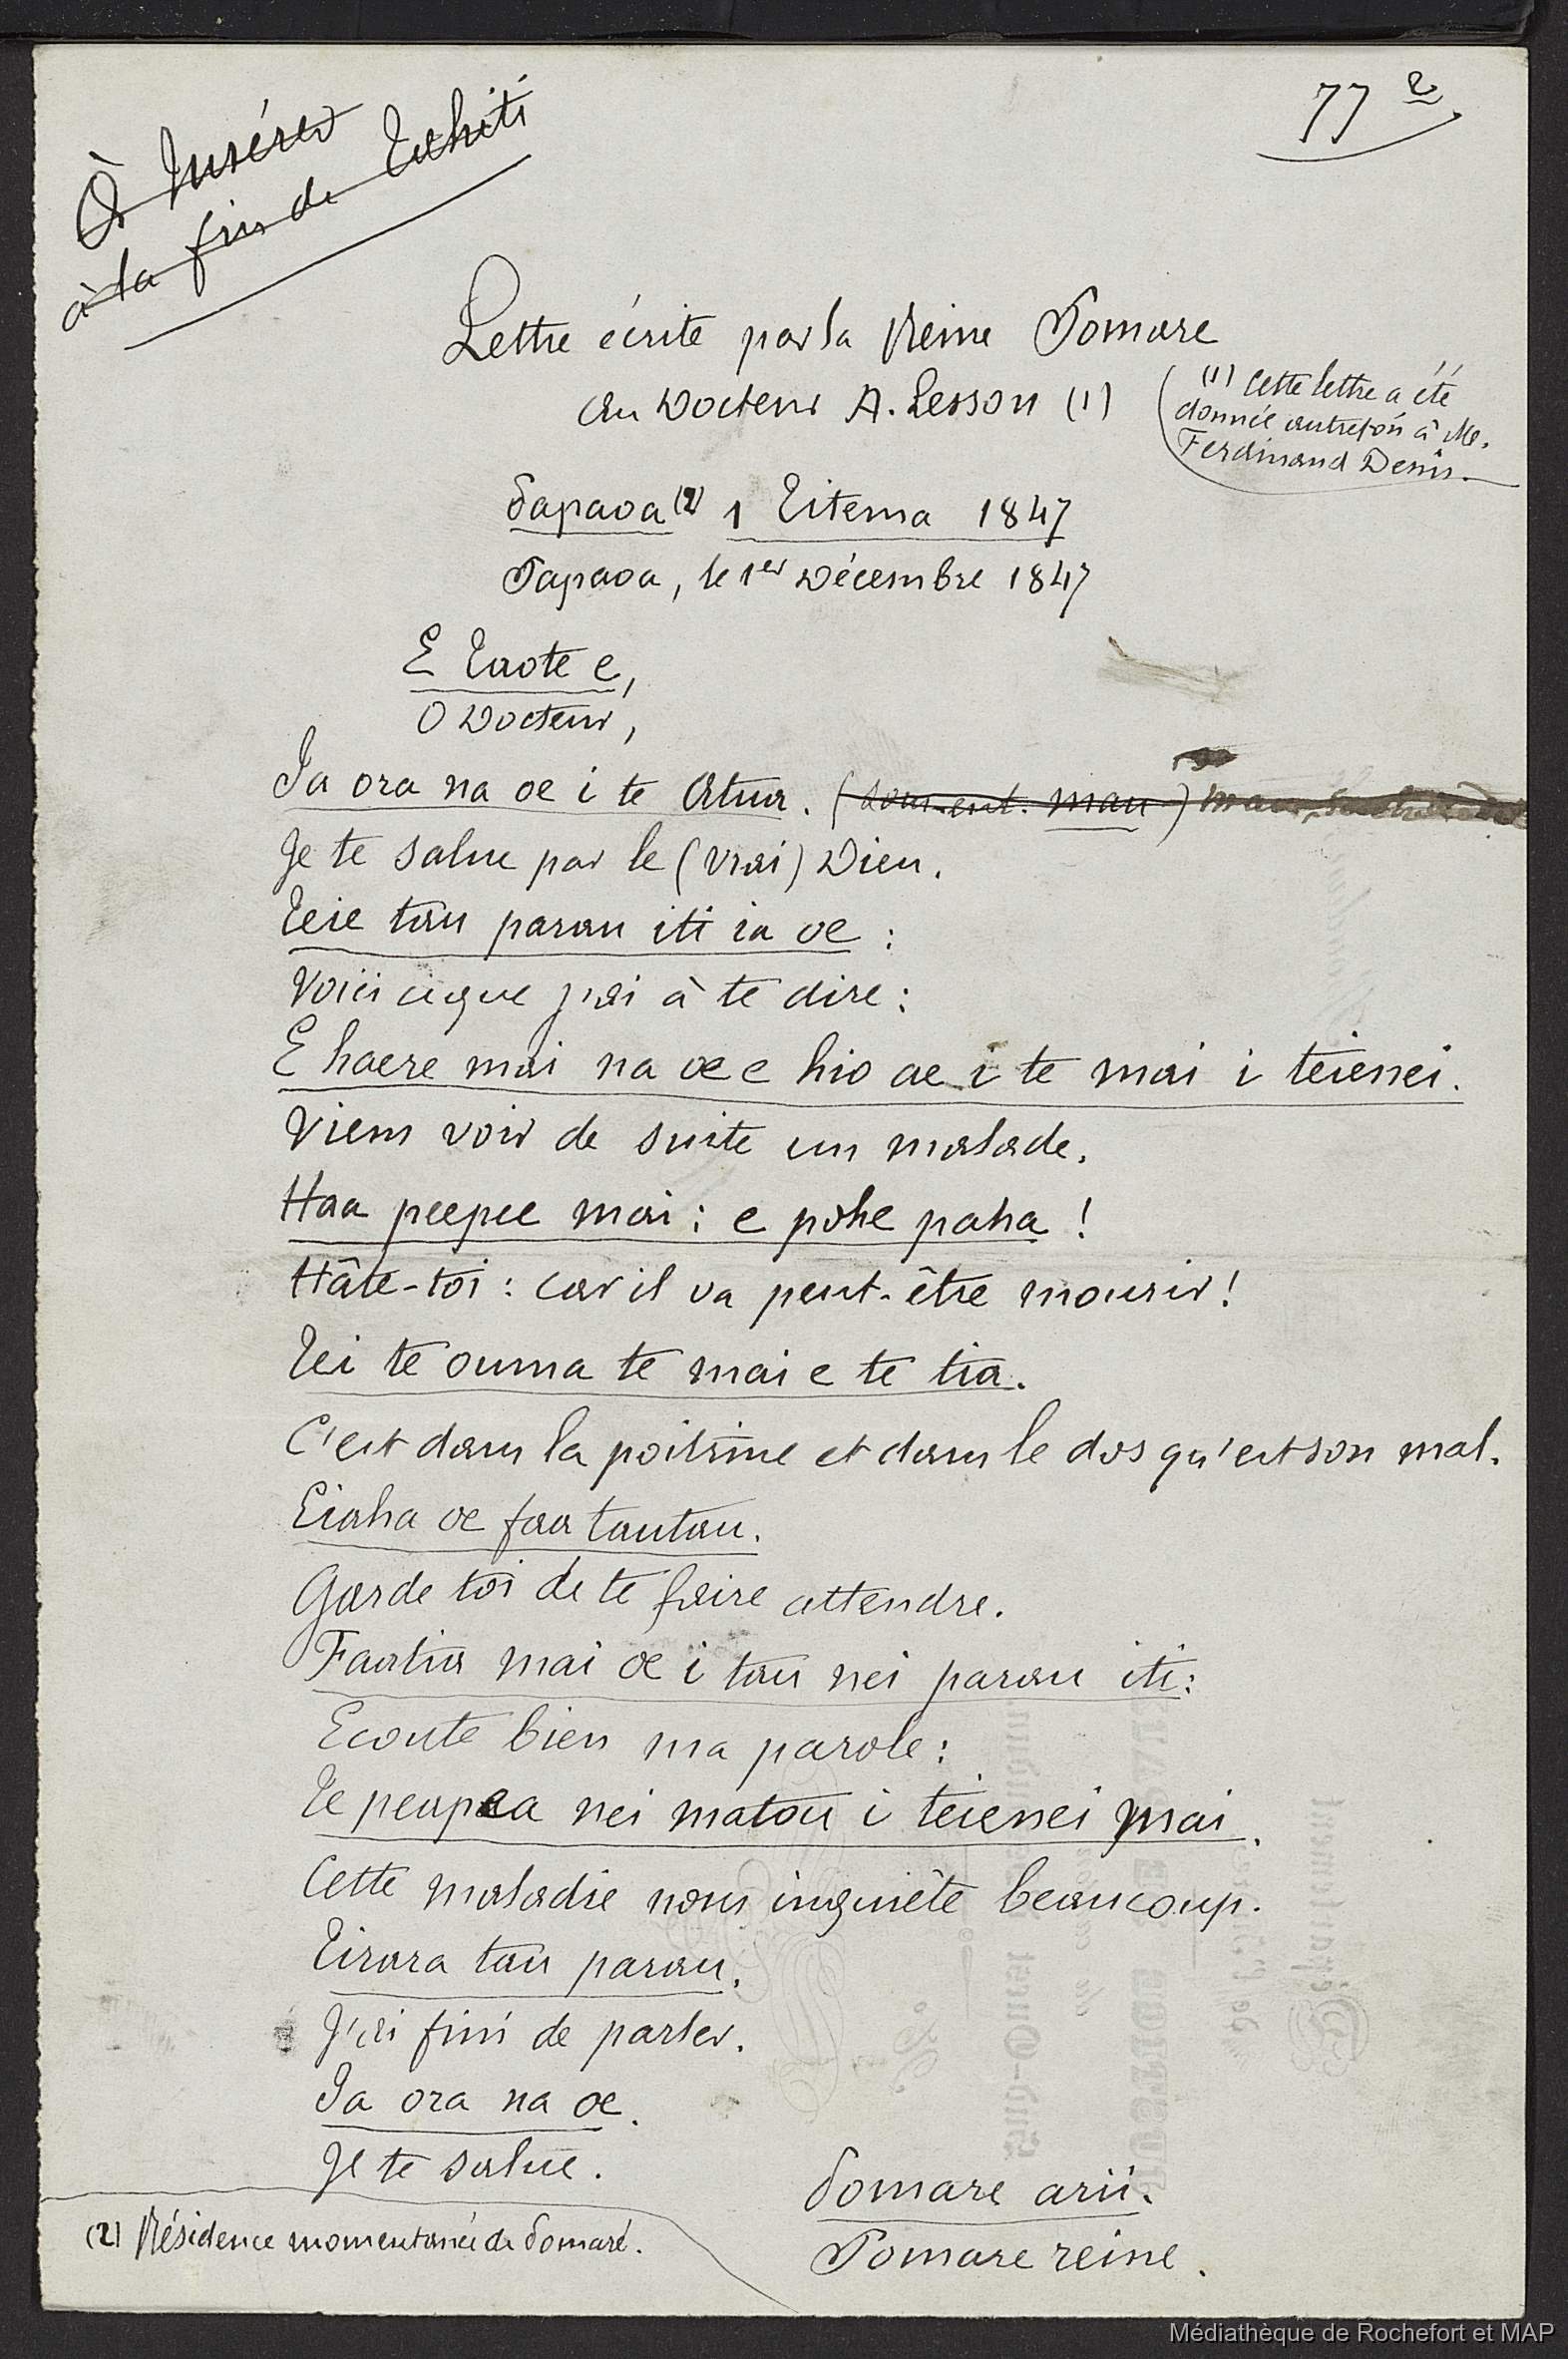 À Insérer
à la fin de Tahiti
77 2
Lettre écrite par la Reine Pomare
au Docteur A. Lesson (1)
(1) Cette lettre a été
donnée autrefois à Mr.
Ferdinand Denis.
Papaoa (2) 1 Titema 1847
Papaoa, le 1er Décembre 1847
E Taote e,
O Docteur,
Ia ora na oe i te Atua. ( mau )
Je te salue par le (vrai) Dieu.
Teie tau parau iti ia oe :
Voici ce que j'ai à te dire :
E haere mai na oe e hio ae i te mai i teienei.
Viens voir de suite un malade.
Haa peepee mai : e pohe paha !
Hâte-toi : car il va peut-être mourir !
Tei te ouma te mai e te tia.
C'est dans la poitrine et dans le dos qu'est son mal.
Eiaha oe faa tautau.
Garde toi de te faire attendre.
Faatia mai oe i tau nei parau iti :
Ecoute bien ma parole :
Te peapea nei matou i teienei mai.
Cette maladie nous inquiète beaucoup.
Tirara tau parau.
J'ai fini de parler.
Ia ora na oe.
Je te salue.
Pomare arii.
Pomare reine.
(2) Résidence momentanée de Pomaré.
Médiathèque de Rochefort et MAP